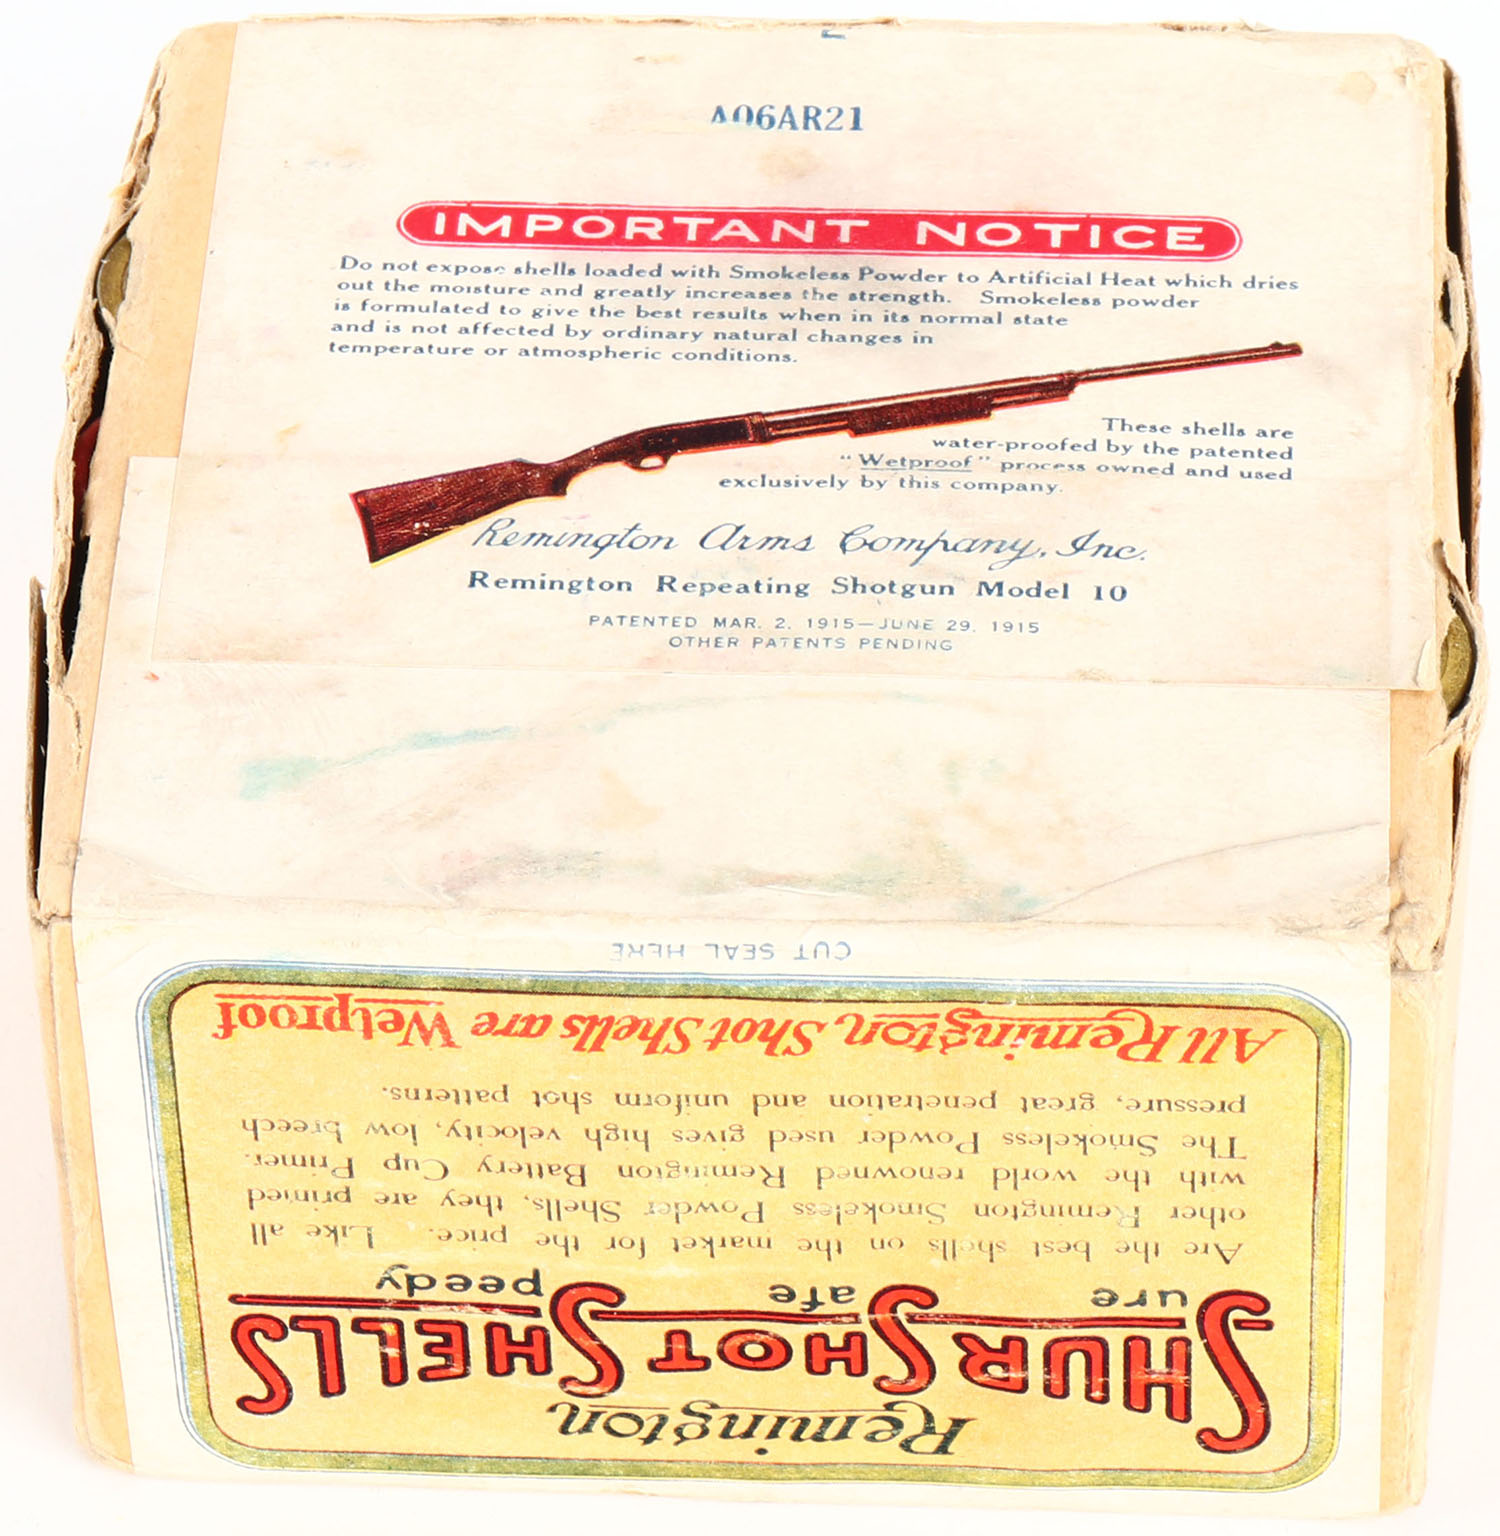 A06AR21
IMPORTANT NOTICE
Do not expose shells loaded with Smokeless Powder to Artificial Heat which dries
out the moisture and greatly increases the strength. Smokeless powder
is formulated to give the best results when in its normal state
and is not affected by ordinary natural changes in
temperature or atmospheric conditions.
These shells are
water-proofed by the patented
"Wetproof" process owned and used
exclusively by this company.
Remington Arms Company, Inc.
Remington Repeating Shotgun Model 10
PATENTED MAR. 2, 1915—JUNE 29, 1915
OTHER PATENTS PENDING
Remington
SHUR SHOT SHELLS
ure afe peedy
Are the best shells on the market for the price. Like all
other Remington Smokeless Powder Shells, they are primed
with the world renowned Remington Battery Cup Primer.
The Smokeless Powder used gives high velocity, low breech
pressure, great penetration and uniform shot patterns.
All Remington Shot Shells are Wetproof
CUT SEAL HERE